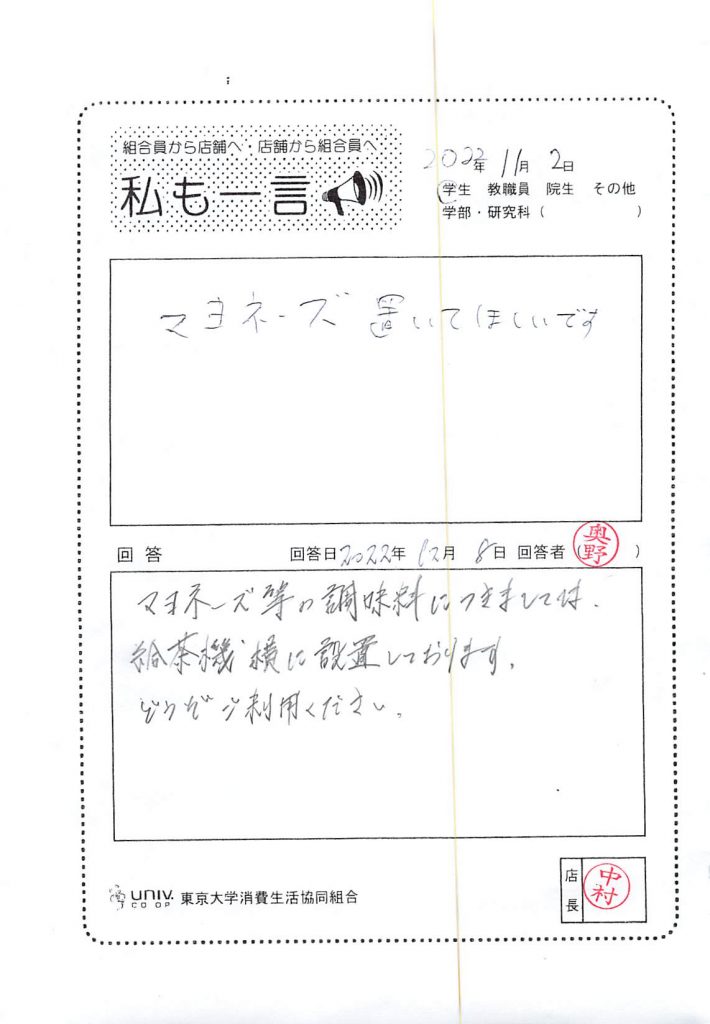 組合員から店舗へ・店舗から組合員へ
私も一言
2022年 11月 2日
学生 教職員 院生 その他
学部・研究科（ ）
マヨネーズ 置いてほしいです
回答 回答日2022年 12月 8日 回答者（奥野）
マヨネーズ等の調味料につきましては、
給茶機横に設置しております。
どうぞご利用ください。
UNIV. CO OP 東京大学消費生活協同組合
店長 中村